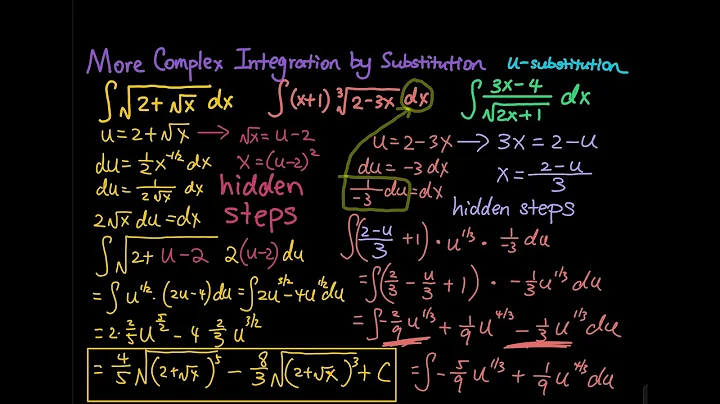 More Complex Integration by Substitution u-substitution
∫√(2+√x) dx
u = 2+√x → √x = u-2
du = 1/2 x^(-1/2) dx x = (u-2)^2
du = 1/(2√x) dx hidden
2√x du = dx steps
∫√(2+ u-2) 2(u-2)du
= ∫u^(1/2) · (2u-4)du = ∫2u^(3/2) - 4u^(1/2) du
= 2·2/5 u^(5/2) - 4·2/3 u^(3/2)
= 4/5 √(2+√x)^5 - 8/3 √(2+√x)^3 + C
∫(x+1) ∛(2-3x) dx
u = 2-3x → 3x = 2-u
du = -3 dx x = (2-u)/3
1/-3 du = dx
hidden steps
∫((2-u)/3 + 1) · u^(1/3) · 1/-3 du
= ∫(2/3 - u/3 + 1) · -1/3 u^(1/3) du
= ∫-2/9 u^(1/3) + 1/9 u^(4/3) - 1/3 u^(1/3) du
= ∫-5/9 u^(1/3) + 1/9 u^(4/3) du
∫(3x-4)/√(2x+1) dx